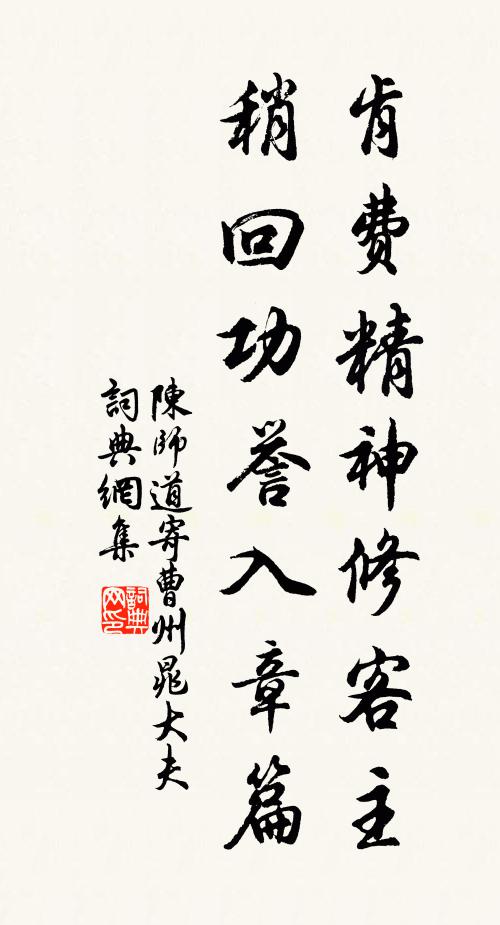 肯費精神修客主
稍回功譽入章篇
陳師道寄曹州晁大夫
詞典網集
詞典网印